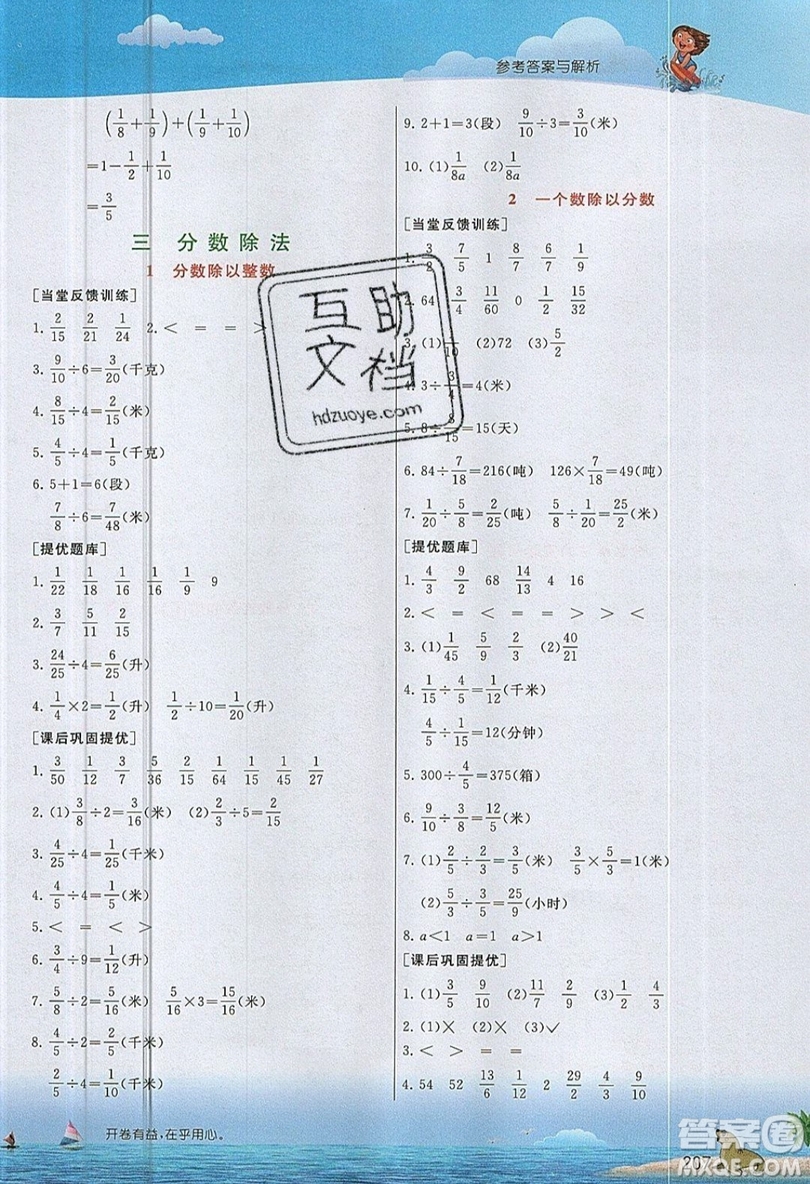 参考答案与解析
(1/8+1/9)+(1/9+1/10)
=1-1/2+1/10
=3/5
三 分数除法
1 分数除以整数
[当堂反馈训练]
1. 2/15 2/21 1/24 2.< = = >
3. 9/10÷6=3/20(千克)
4. 8/15÷4=2/15(米)
5. 4/5÷4=1/5(千克)
6. 5+1=6(段)
7/8÷6=7/48(米)
[提优题库]
1. 1/22 1/18 1/16 1/16 1/9 9
2. 3/7 5/11 2/15
3. 24/25÷4=6/25(升)
4. 1/4×2=1/2(升) 1/2÷10=1/20(升)
[课后巩固提优]
1. 3/50 1/12 3/7 5/36 2/15 1/64 1/15 1/45 1/27
2. (1)3/8÷2=3/16(米) (2)2/3÷5=2/15
3. 4/25÷4=1/25(千米)
4. 4/5÷4=1/5(米)
5. < = = < >
6. 3/4÷9=1/12(升)
7. 5/8÷2=5/16(米) 5/16×3=15/16(米)
8. 4/5÷2=2/5(千米)
4/5÷4=1/5(千米)
9. 2+1=3(段) 9/10÷3=3/10(米)
10. (1)1/8a (2)1/8a
2 一个数除以分数
[当堂反馈训练]
1. 3/2 7/5 1 8/7 6/7 1/9
2. 64 3/4 11/60 0 1/2 15/32
3. (1)1/10 (2)72 (3)5/2
4. 3÷3/4=4(米)
5. 8÷8/15=15(天)
6. 84÷7/18=216(吨) 126×7/18=49(吨)
7. 1/20÷5/8=2/25(吨) 5/8÷1/20=25/2(米)
[提优题库]
1. 4/3 9/2 68 14/13 4 16
2. < = < = = > > <
3. (1)1/45 5/9 2/3 (2)40/21
4. 1/15÷4/5=1/12(千米)
4/5÷1/15=12(分钟)
5. 300÷4/5=375(箱)
6. 9/10÷3/8=12/5(米)
7. (1)2/5÷2/3=3/5(米) 3/5×5/3=1(米)
(2)5/3÷3/5=25/9(小时)
8. a<1 a=1 a>1
[课后巩固提优]
1. (1)3/5 9/10 (2)11/7 2/9 (3)1/2 4/3
2. (1)× (2)× (3)✓
3. < > = =
4. 54 52 13/6 1/12 2 29/2 4/3 9/10
互助
文档
hdzuoye.com
开卷有益,在乎用心。
207
答案圈
MXQE.COM